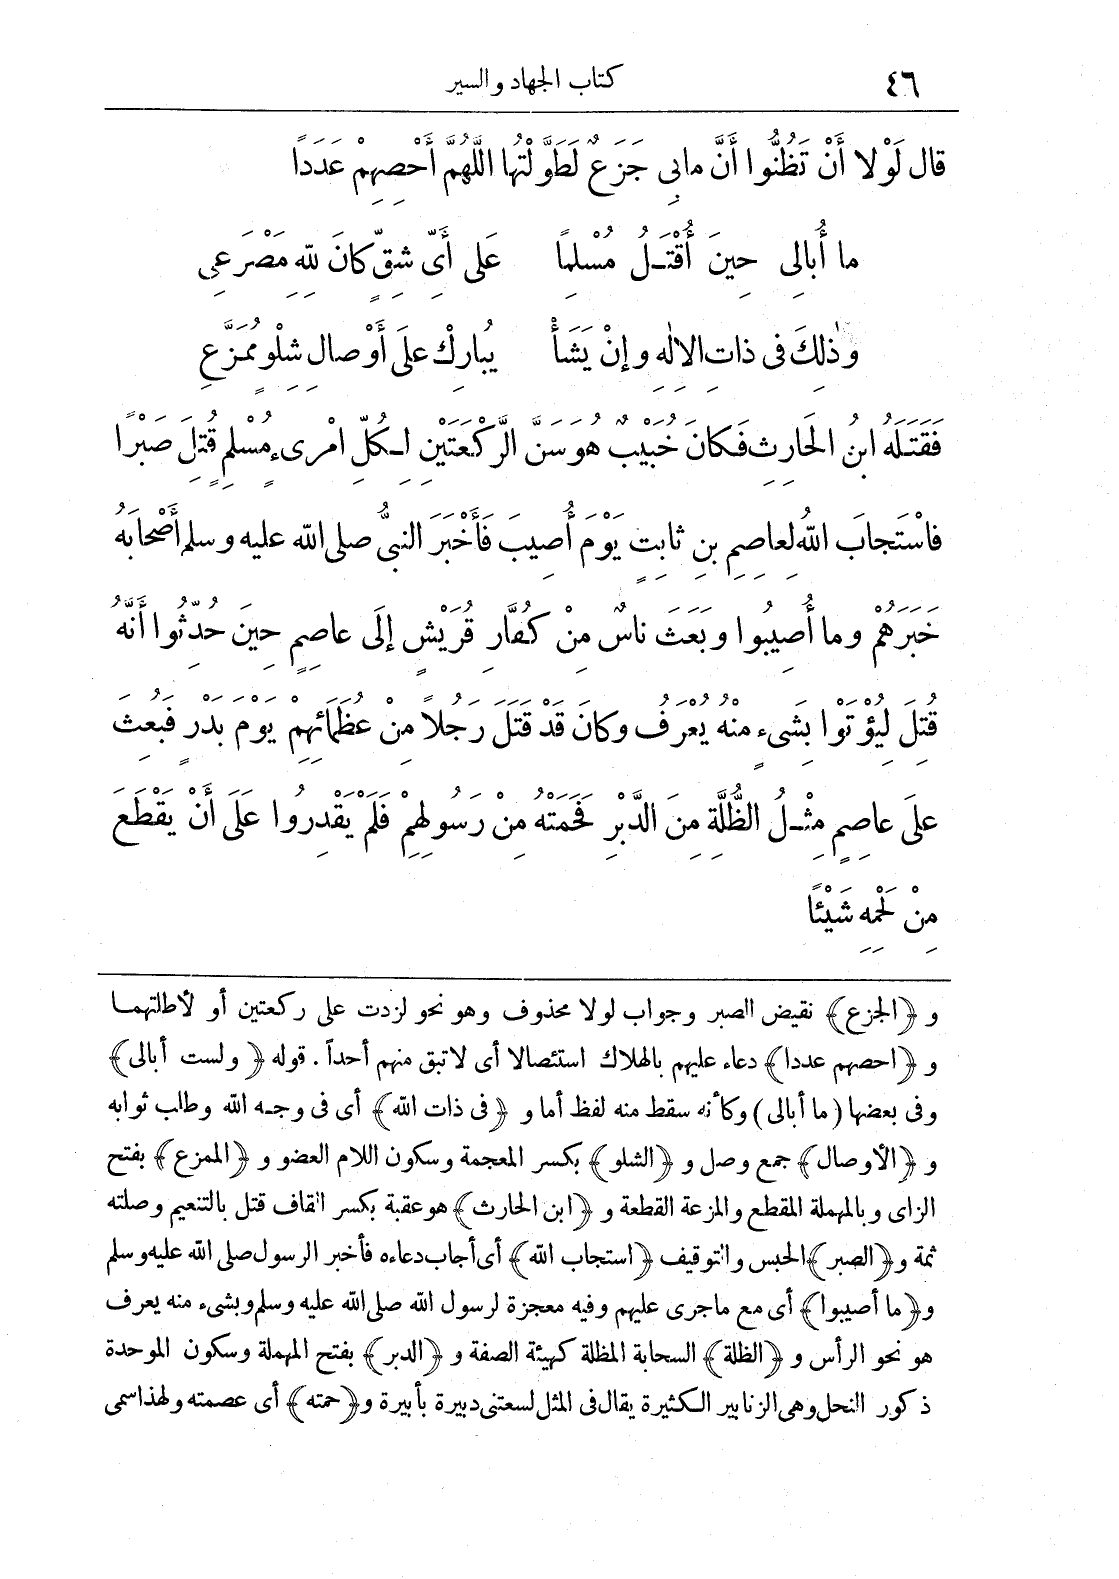 ٤٦
كتاب الجهاد والسير
قال لَوْلا أَنْ تَظُنُّوا أَنَّ مابِى جَزَعٌ لَطَوَّلْتُها اللَّهُمَّ أَحْصِهِمْ عَدَدًا
ما أُبالِى حِينَ أُقْتَـلُ مُسْلِمًا عَلَى أَىِّ شِقٍّ كانَ لِلّهِ مَصْرَعِى
وَذٰلِكَ فى ذاتِ الالٰهِ وإنْ يَشَأْ يُبارِكْ علَى أَوْصالِ شِلْوٍ مُمَزَّعِ
فَقَتَـلَهُ ابنُ الحَارِثِ فَـكانَ خُبَيْبٌ هوَ سَنَّ الرَّكْعَتَيْنِ لِـكُلِّ امْرِىءٍ مُسْلِمٍ قُتِلَ صَبْرًا
فاسْتَجابَ اللهُ لِعاصِمِ بنِ ثابِتٍ يَوْمَ أُصِيبَ فَأَخْبَرَ النبىُّ صلى الله عليه وسلم أَصْحابَهُ
خَبَرَهُمْ وما أُصِيبُوا وبَعَثَ ناسٌ مِنْ كُفَّارِ قُرَيْشٍ إلَى عاصِمٍ حِينَ حُدِّثُوا أَنَّهُ
قُتِلَ لِيُؤْتَوْا بِشَىءٍ مِنْهُ يُعْرَفُ وكانَ قَدْ قَتَلَ رَجُلاً مِنْ عُظَمَائِهِمْ يَوْمَ بَدْرٍ فَبُعِثَ
علَى عاصِمٍ مِثْـلُ الظُّلَّةِ مِنَ الدَّبْرِ فَحَمَتْهُ مِنْ رَسُولِهِمْ فَلَمْ يَقْدِرُوا عَلَى أَنْ يَقْطَعَ
مِنْ لَحْمِهِ شَيْئًا
و ﴿الجزع﴾ نقيض الصبر وجواب لولا محذوف وهو نحو لزدت على ركعتين أو لأطالتهما
و ﴿احصهم عددا﴾ دعاء عليهم بالهلاك استئصالا أى لا تبق منهم أحداً . قوله ﴿ولست أبالى﴾
وفى بعضها (ما أبالى) وكأنه سقط منه لفظ أما و ﴿فى ذات الله﴾ أى فى وجـه الله وطلب ثوابه
و ﴿الأوصال﴾ جمع وصل و ﴿الشلو﴾ بكسر المعجمة وسكون اللام العضو و ﴿الممزع﴾ بفتح
الزاى وبالمهملة المقطع والمزعة القطعة و ﴿ابن الحارث﴾ هو عقبة بكسر القاف قتل بالتنعيم وصلته
ثمة و﴿الصبر﴾ الحبس والتوقيف ﴿استجاب الله﴾ أى أجاب دعاءه فأخبر الرسول صلى الله عليه وسلم
و﴿ما أصيبوا﴾ أى مع ماجرى عليهم وفيه معجزة لرسول الله صلى الله عليه وسلم وبشىء منه يعرف
هو نحو الرأس و ﴿الظلة﴾ السحابة المظلة كهيئة الصفة و ﴿الدبر﴾ بفتح المهملة وسكون الموحدة
ذكور النحل وهى الزنابير الكثيرة يقال فى المثل لسعتنى دبيرة بأبيرة و﴿حمته﴾ أى عصمته ولهذا سمى